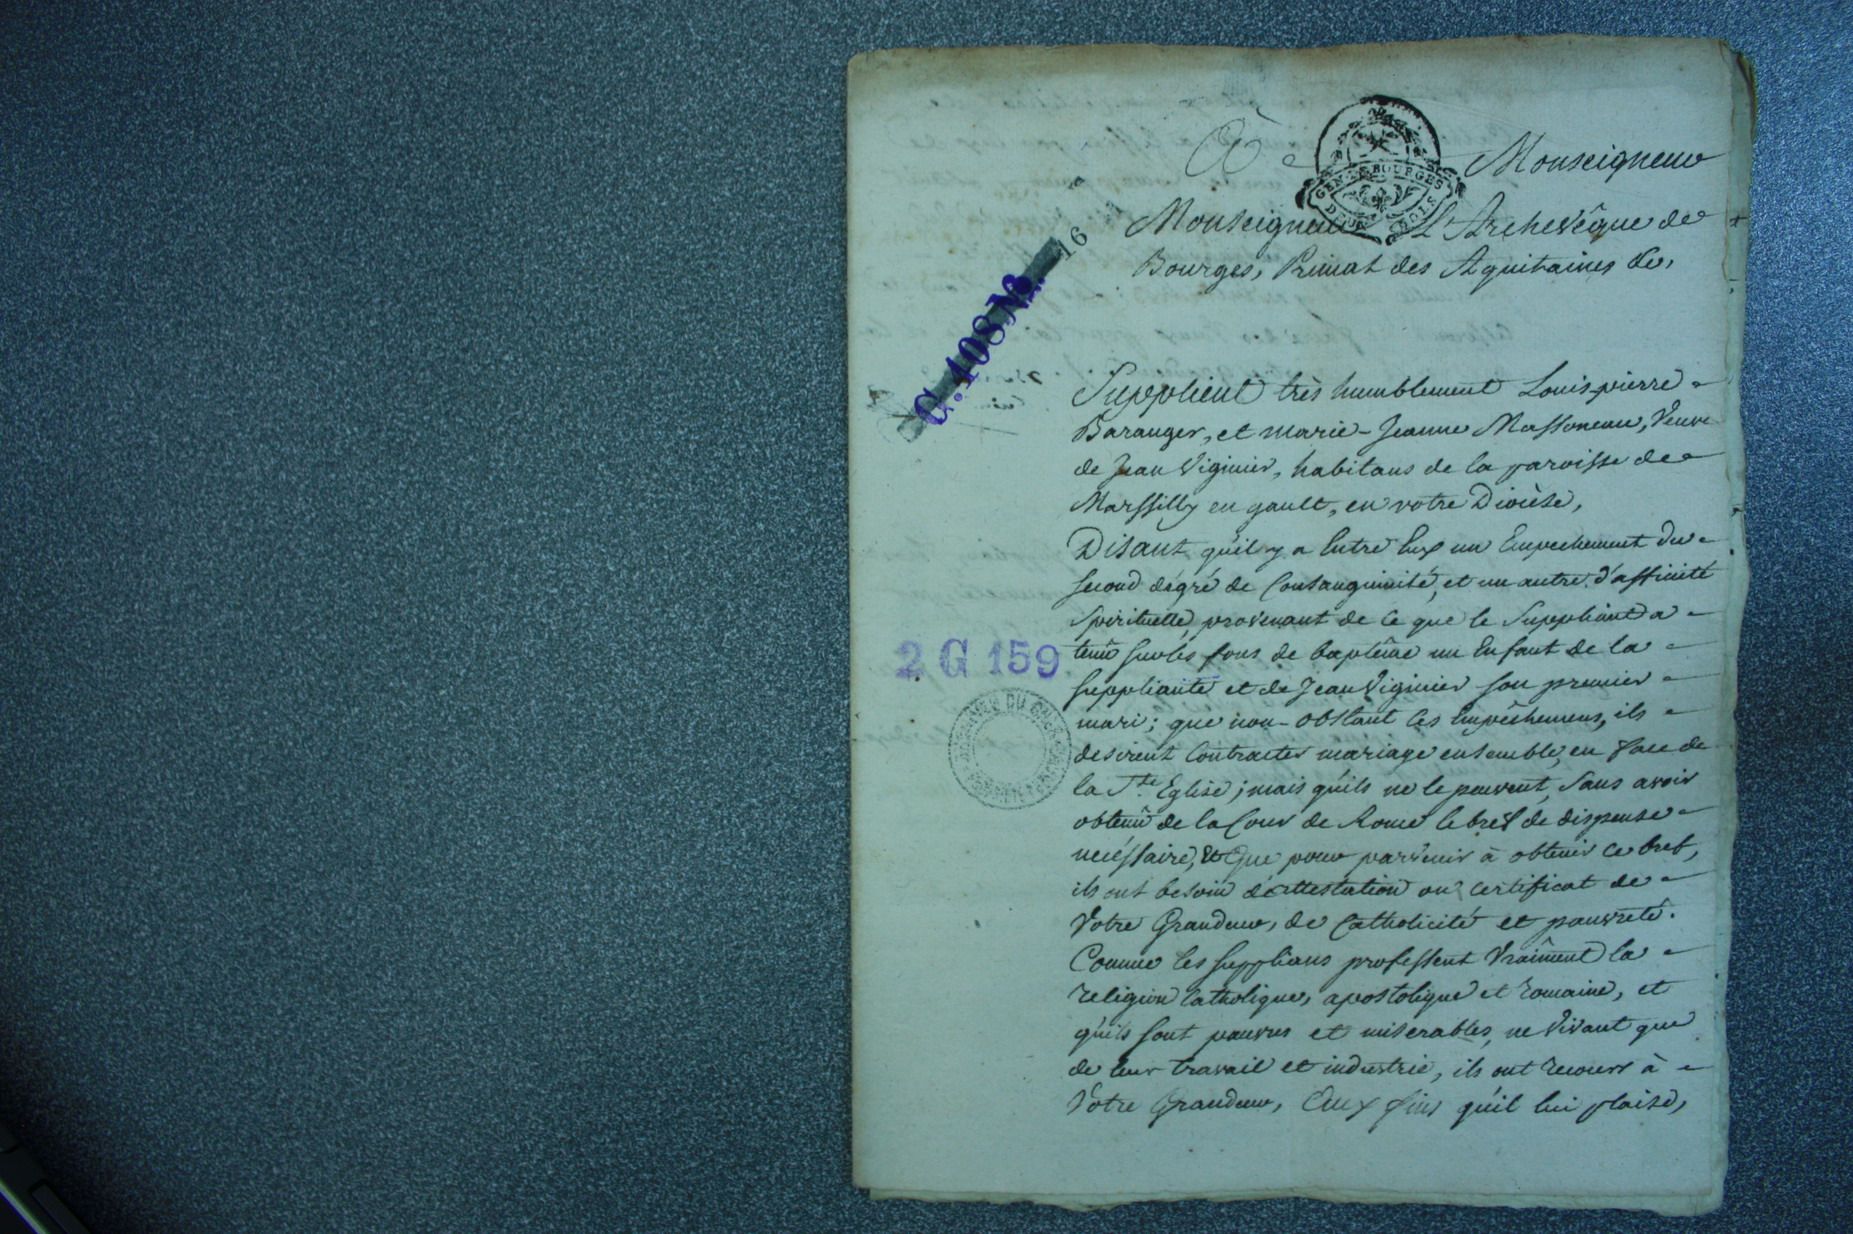 A Monseigneur
GEN. DE BOURGES
DEUX SOLS
Monseigneur L'Archevêque de
Bourges, Primat des Aquitaines &c,
16
C. 108 M.
Supplient très humblement Louis-pierre
Baranger, et marie-Jeanne Massoneau, Veuve
de Jean Viginier, habitans de la paroisse de
Marssilly en gault, en votre Diocèse,
Disant qu'il y a Entre Eux un Empechement du
second dégré de Consanguinité, et un autre d'affinité
Spirituelle, provenant de ce que le Suppliant a
tenû sur les fons de baptême un Enfant de la
suppliante et de Jean Viginier son premier
2 G 159
mari; que non-obstant ces Empêchemens, ils
desirent Contracter mariage ensemble, en face de
la Ste Eglise; mais qu'ils ne le peuvent, sans avoir
obtenû de la Cour de Rome le bref de dispense
necéssaire, Et Que pour parvenir à obtenir ce bref,
ils ont besoin d'attestation ou certificat de
Votre Grandeur, de Catholicité et pauvreté.
Comme les supplians professent Vraiment la
religion Catholique, apostolique et romaine, et
qu'ils sont pauvres et miserables, ne Vivant que
de leur travail et industrie, ils ont recours à
Votre Grandeur, Aux fins qu'il lui plaise,
ARCHIVES DU CHER